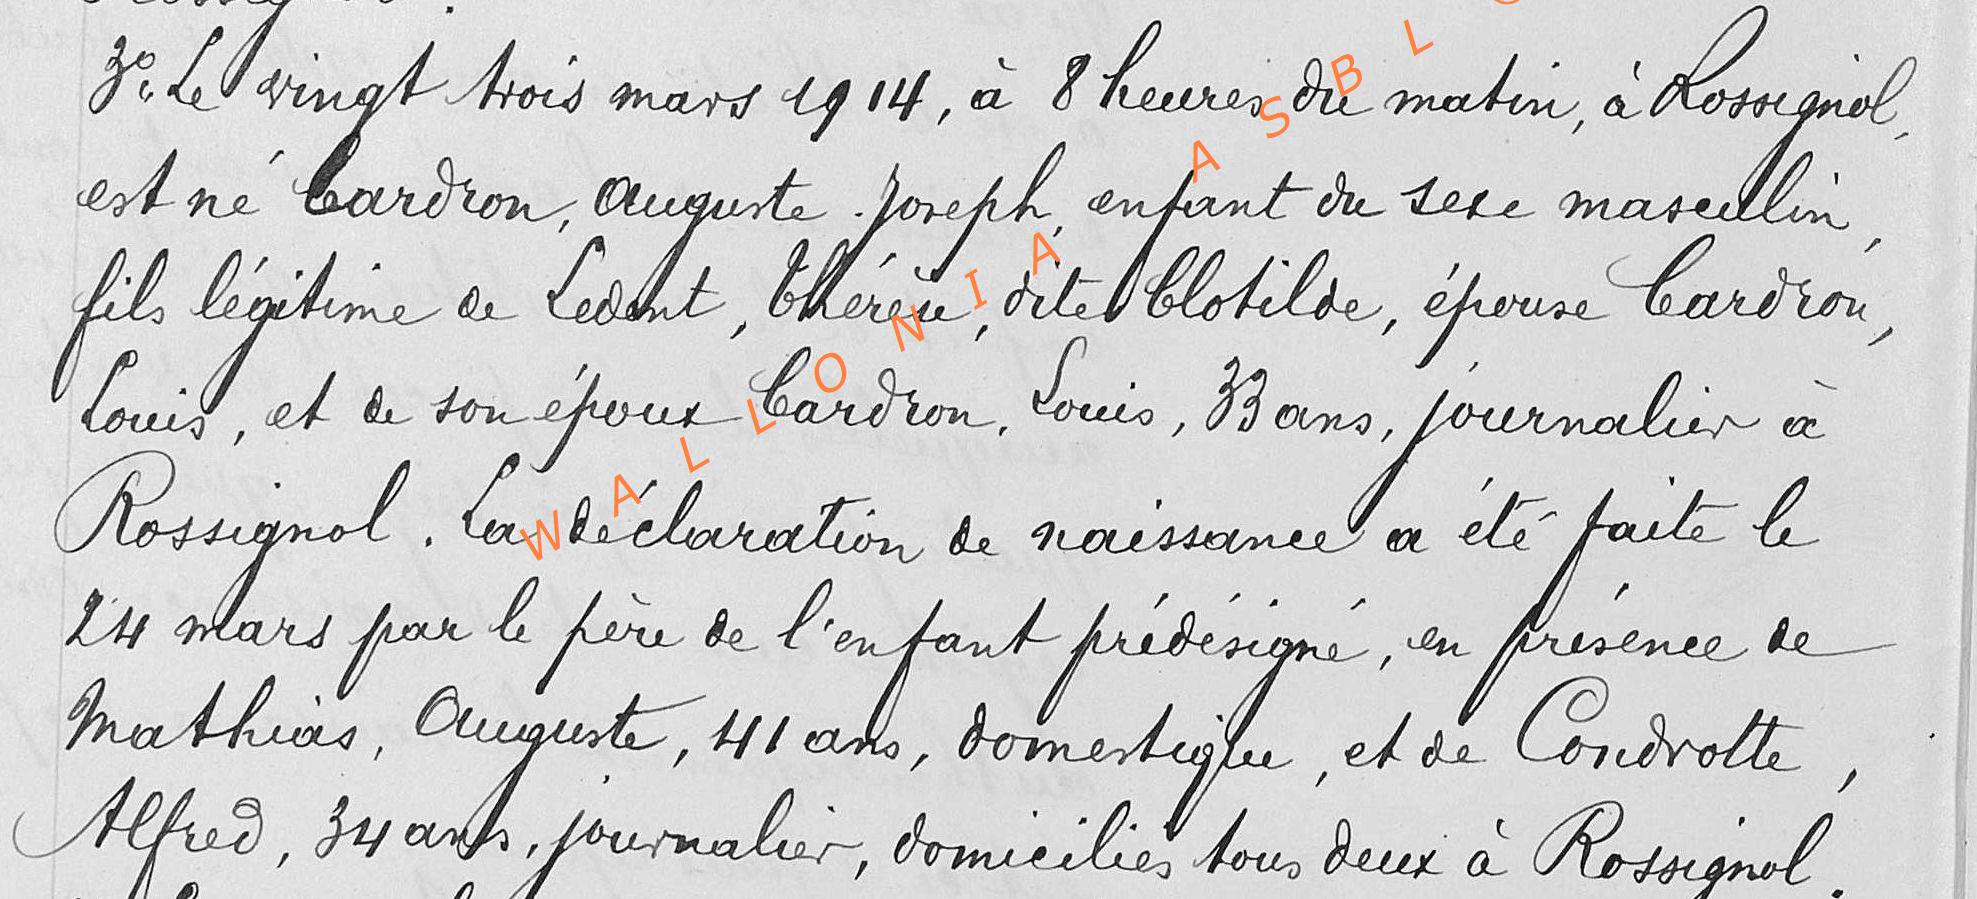 3° Le vingt trois mars 1914, à 8 heures du matin, à Rossignol,
est né Cardron, Auguste Joseph, enfant du sexe masculin,
fils légitime de Ledent, Thérèse, dite Clotilde, épouse Cardron,
Louis, et de son époux Cardron, Louis, 33 ans, journalier à
Rossignol. La déclaration de naissance a été faite le
24 mars par le père de l'enfant prédésigné, en présence de
Mathias, Auguste, 41 ans, domestique, et de Condrotte,
Alfred, 34 ans, journalier, domiciliés tous deux à Rossignol.
WALLONIA ASBL